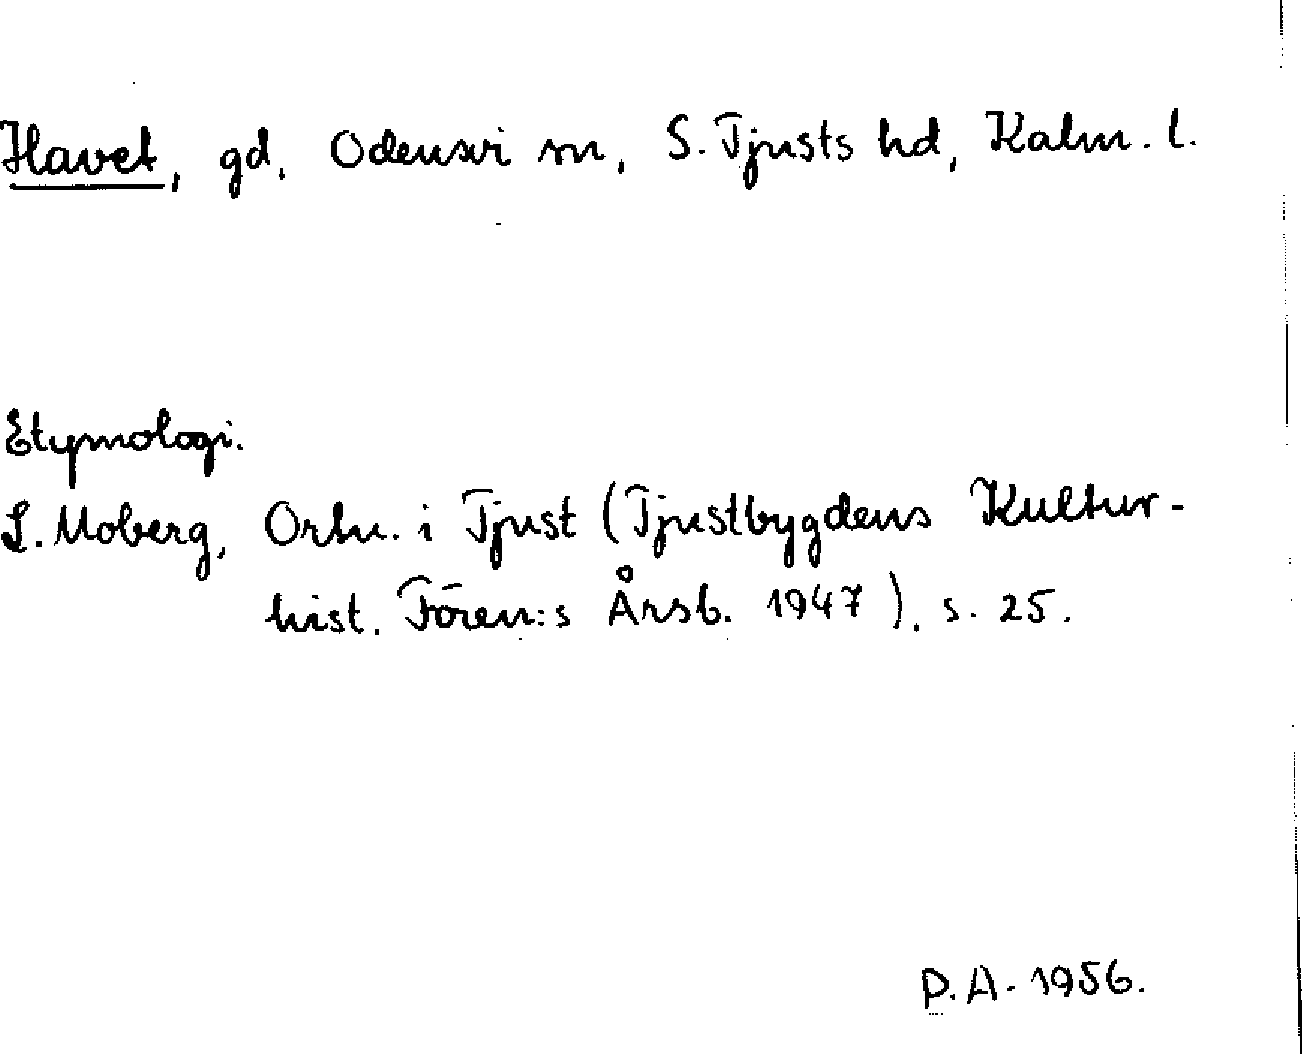 Havet, gd, Odensvi sn, S. Tjusts hd, Kalm. l.
Etymologi.
L. Moberg, Ortn. i Tjust (Tjustbygdens Kultur-
hist. Fören:s Årsb. 1947), s. 25.
P.A. 1956.